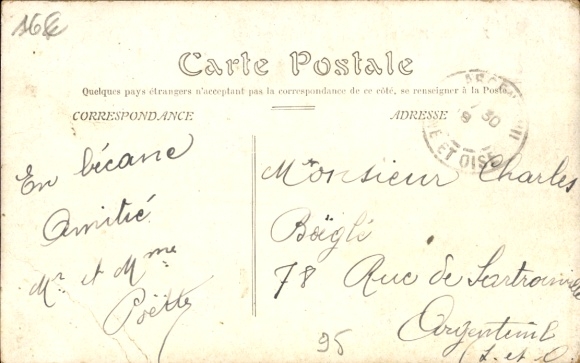 Carte Postale
Quelques pays étrangers n'acceptant pas la correspondance de ce côté, se renseigner à la Poste
CORRESPONDANCE
ADRESSE
En bécane
Amitié
Mr et Mme
Poëtte
Monsieur Charles
Boïgli
78 Rue de Sartrouville
Argenteuil
S. et O.
95
ET OISE